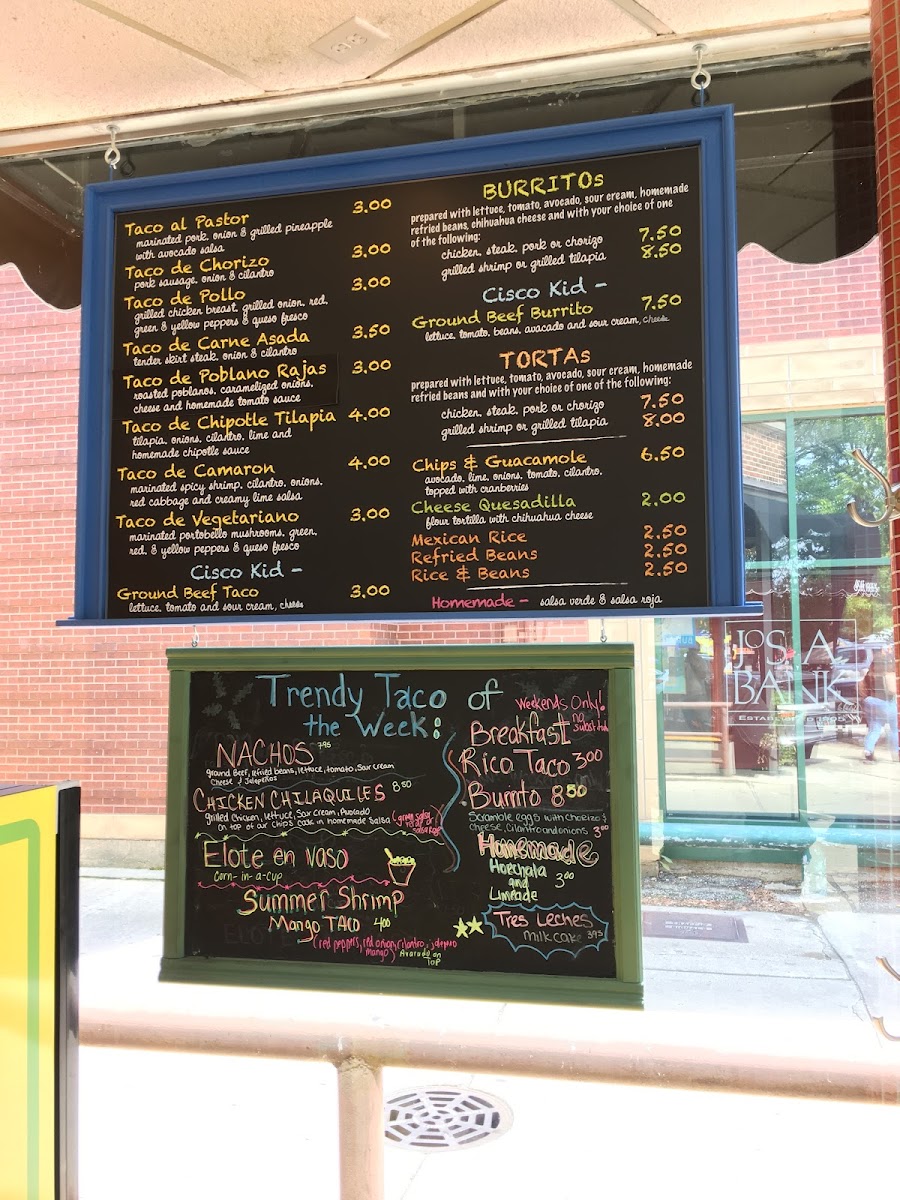 Taco al Pastor 3.00
marinated pork, onion & grilled pineapple
with avocado salsa
Taco de Chorizo 3.00
pork sausage, onion & cilantro
Taco de Pollo 3.00
grilled chicken breast, grilled onion, red,
green & yellow peppers & queso fresco
Taco de Carne Asada 3.50
tender skirt steak, onion & cilantro
Taco de Poblano Rajas 3.00
roasted poblanos, caramelized onions,
cheese and homemade tomato sauce
Taco de Chipotle Tilapia 4.00
tilapia, onions, cilantro, lime and
homemade chipotle sauce
Taco de Camaron 4.00
marinated spicy shrimp, cilantro, onions,
red cabbage and creamy lime salsa
Taco de Vegetariano 3.00
marinated portobello mushrooms, green,
red, & yellow peppers & queso fresco
Cisco Kid -
Ground Beef Taco 3.00
lettuce, tomato and sour cream, cheese
BURRITOs
prepared with lettuce, tomato, avocado, sour cream, homemade
refried beans, chihuahua cheese and with your choice of one
of the following:
chicken, steak, pork or chorizo 7.50
grilled shrimp or grilled tilapia 8.50
Cisco Kid -
Ground Beef Burrito 7.50
lettuce, tomato, beans, avacado and sour cream, cheese
TORTAs
prepared with lettuce, tomato, avocado, sour cream, homemade
refried beans and with your choice of one of the following:
chicken, steak, pork or chorizo 7.50
grilled shrimp or grilled tilapia 8.00
Chips & Guacamole 6.50
avocado, lime, onions, tomato, cilantro,
topped with cranberries
Cheese Quesadilla 2.00
flour tortilla with chihuahua cheese
Mexican Rice 2.50
Refried Beans 2.50
Rice & Beans 2.50
Homemade - salsa verde & salsa roja
Trendy Taco of
the Week:
NACHOS 7.95
ground Beef, refried beans, lettuce, tomato, Sour cream
Cheese & Jalapeños
CHICKEN CHILAQUILES 8.50
grilled Chicken, lettuce, Sour Cream, Avocado
on top of our chips cook in homemade salsa
(green salsa
salsa Roja)
Elote en vaso
Corn-in-a-cup
Summer Shrimp
Mango TACO 4.00
(red peppers, red onion, cilantro, jalapeno
mango)
Avacado on
Top
Weekends Only!
no
Breakfast
Rico Taco 3.00
Burrito 8.50
Scramble eggs with chorizo &
cheese, cilantro and onions 3.00
Homemade
Horchata
and 3.00
Limeade
Tres Leches
Milk cake 3.95
JOS. A.
BANK
ESTABLISHED 1905